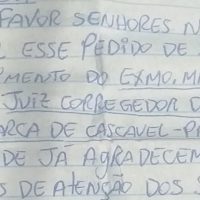 FAVOR SENHORES N
ESSE PEDIDO DE
MENTO DO EXMO. M
JUIZ CORREGEDOR D
ARCA DE CASCAVEL-P
DE JÁ AGRADECEM
S DE ATENÇÃO DOS S